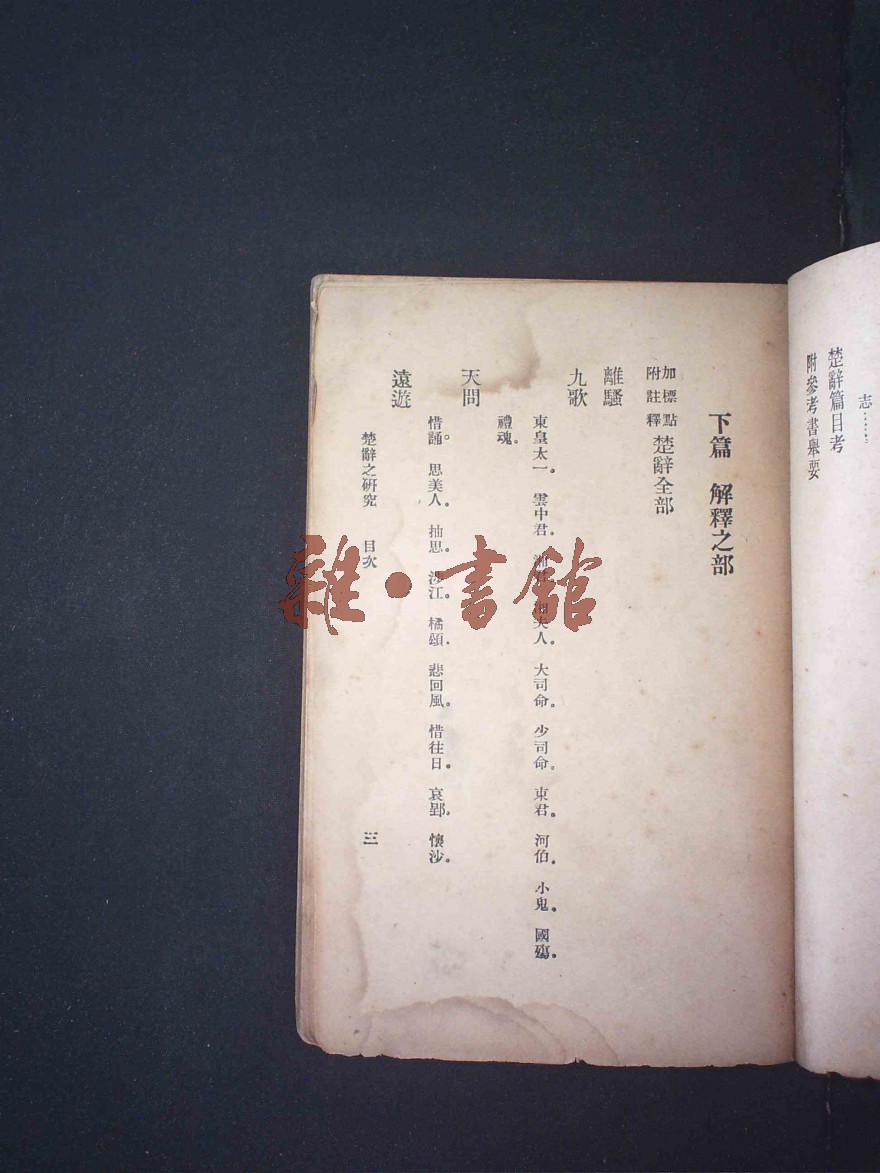 志……
楚辭篇目考
附參考書舉要
下篇 解釋之部
加標點
附註釋 楚辭全部
離騷
九歌
東皇太一。 雲中君。 湘夫人。 大司命。 少司命。 東君。 河伯。 小鬼。 國殤。
禮魂。
天問
惜誦。 思美人。 抽思。 涉江。 橘頌。 悲回風。 惜往日。 哀郢。 懷沙。
遠遊
楚辭之研究 目次
三
雜·書館